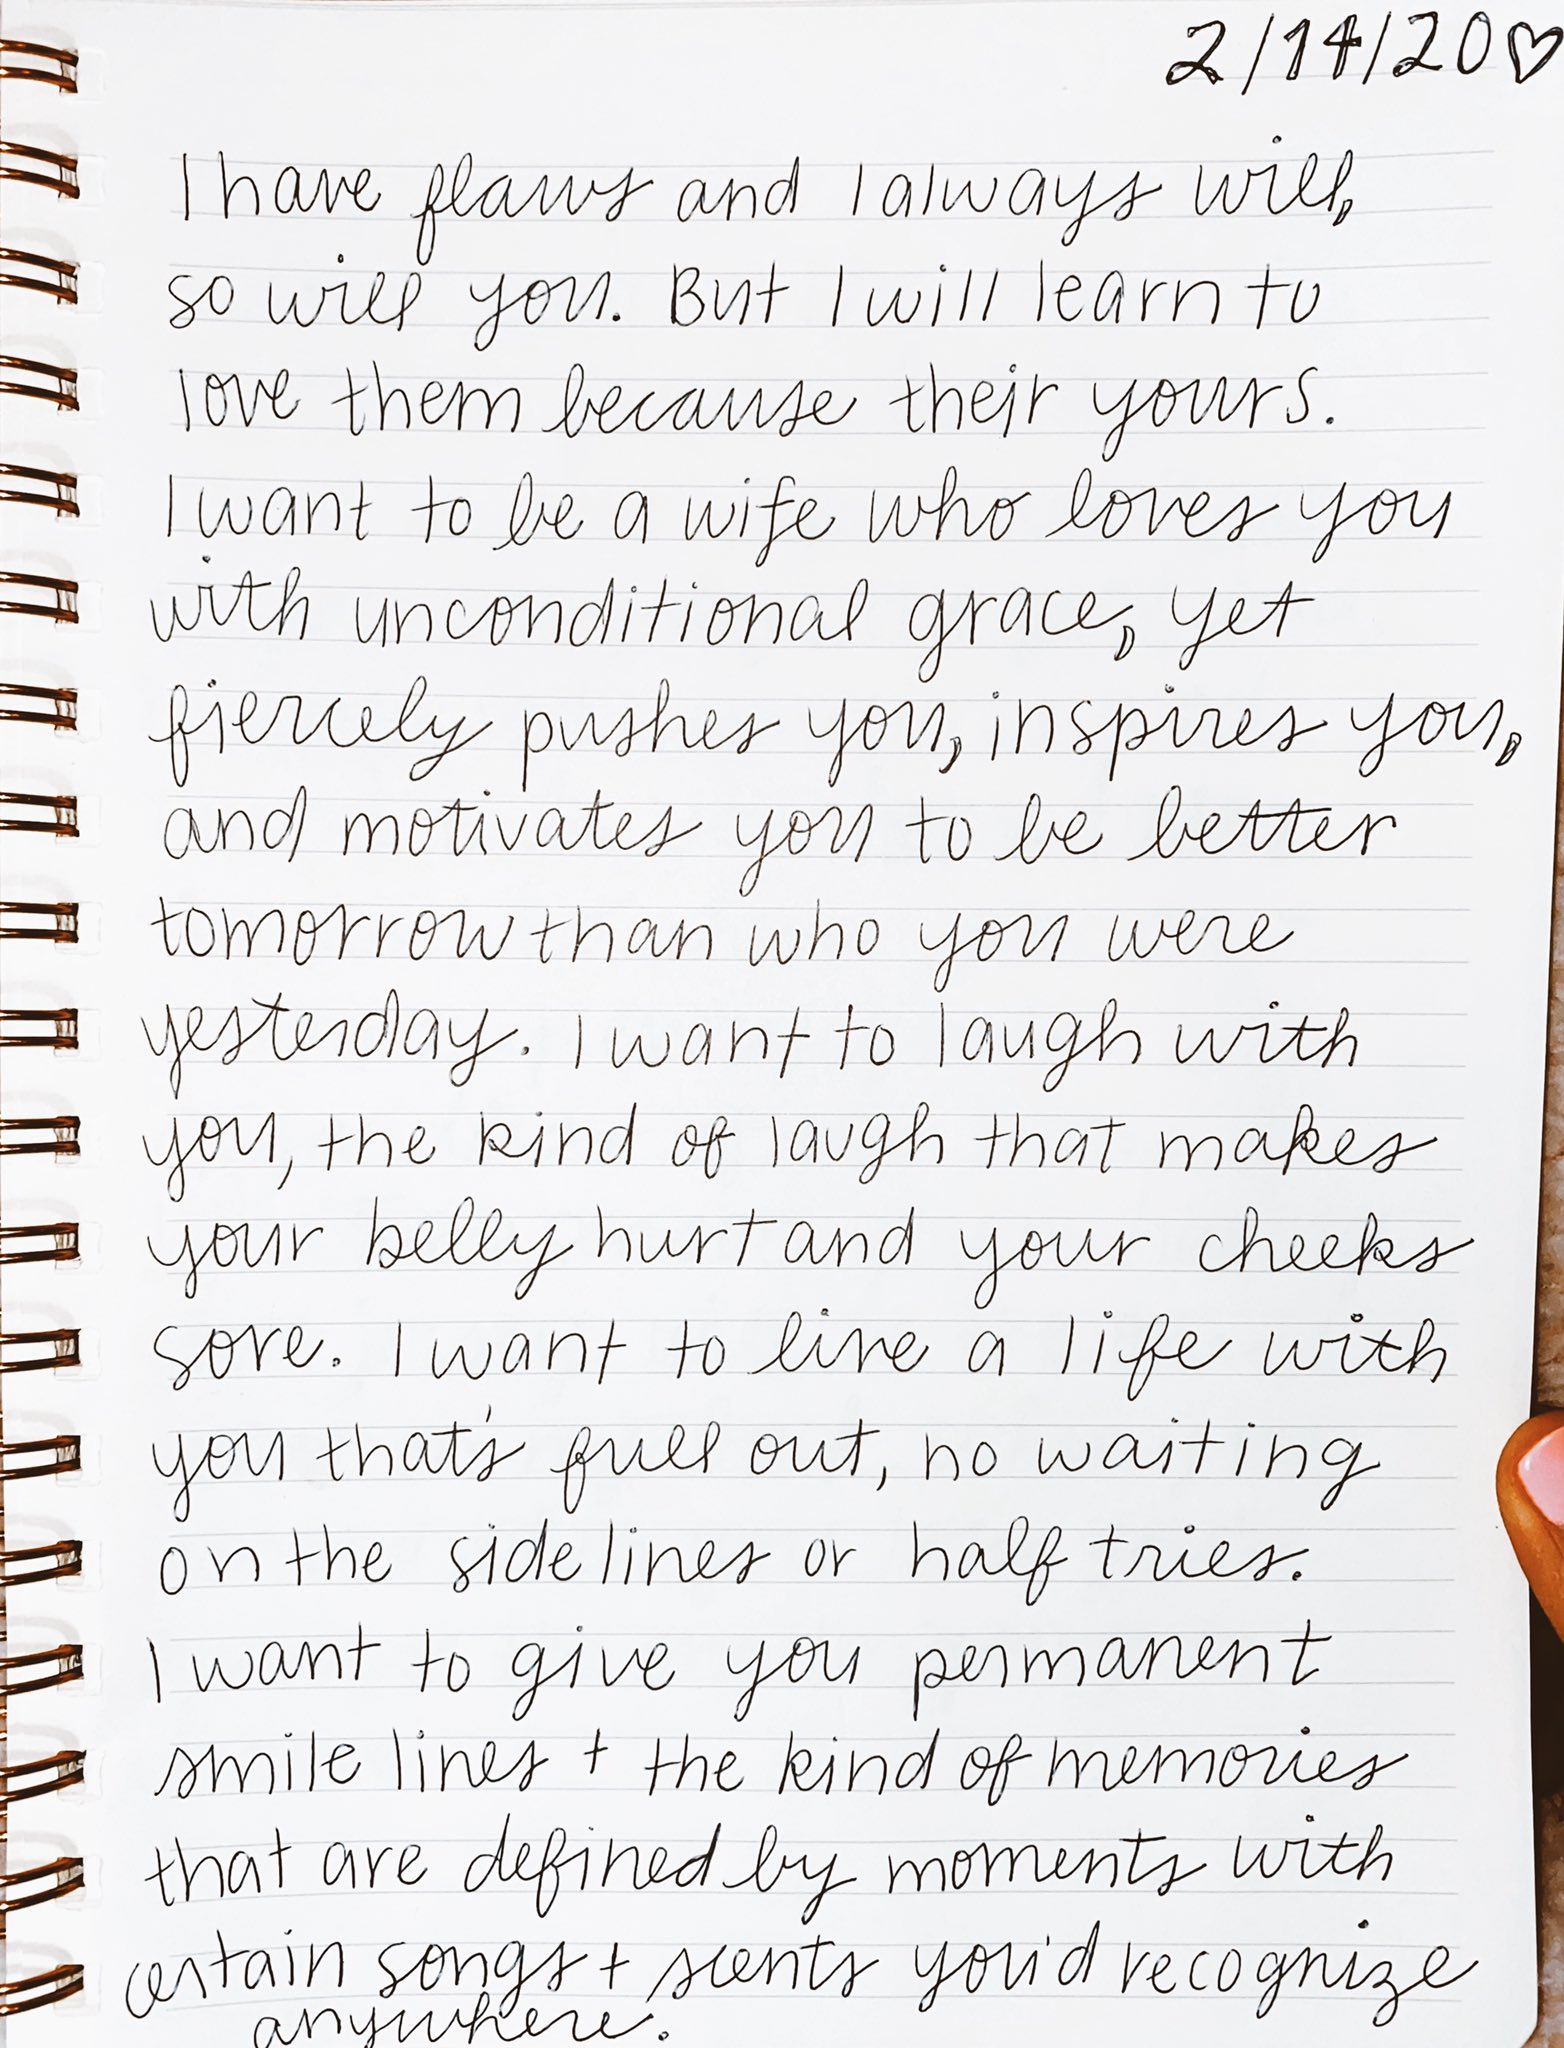 2/14/20♡
I have flaws and I always will,
so will you. But I will learn to
love them because their yours.
I want to be a wife who loves you
with unconditional grace, yet
fiercely pushes you, inspires you,
and motivates you to be better
tomorrow than who you were
yesterday. I want to laugh with
you, the kind of laugh that makes
your belly hurt and your cheeks
sore. I want to live a life with
you that's full out, no waiting
on the sidelines or half tries.
I want to give you permanent
smile lines + the kind of memories
that are defined by moments with
certain songs + scents you'd recognize
anywhere.